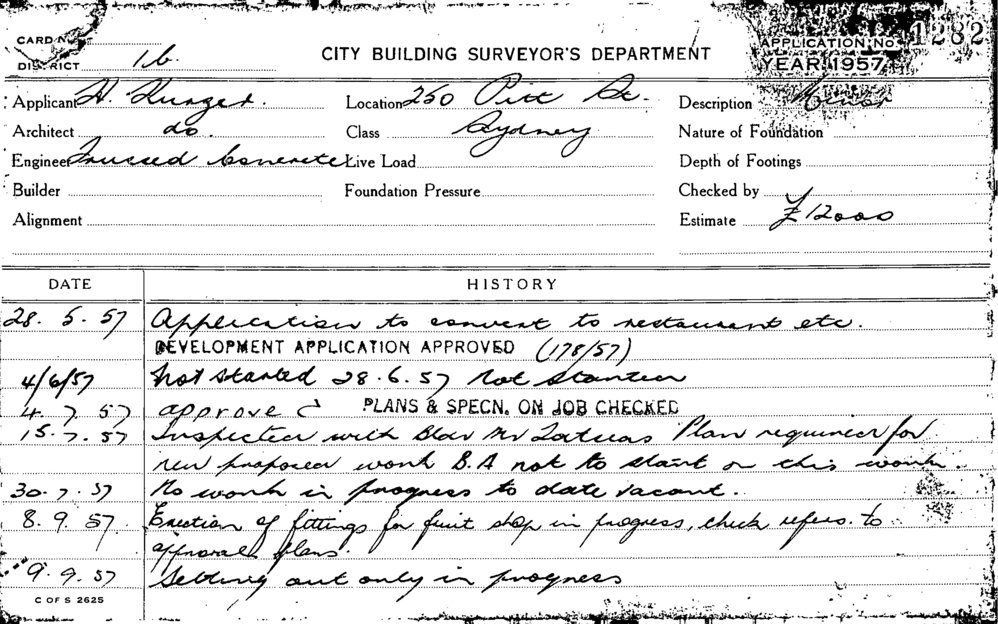 CARD No.
DISTRICT 16.
CITY BUILDING SURVEYOR'S DEPARTMENT
APPLICATION No. 1282
YEAR 1957
Applicant H. Location 250 Pitt St. Description Minor
Architect do. Class Sydney Nature of Foundation
Engineer Trussed Concrete Live Load Depth of Footings
Builder Foundation Pressure Checked by
Alignment Estimate £12000
DATE HISTORY
28. 5. 57 Application to convert to restaurant etc.
DEVELOPMENT APPLICATION APPROVED (178/57)
4/6/57 Not started 28.6.57 Not Started
4. 7. 57 approved PLANS & SPECN. ON JOB CHECKED
15.7.57 Inspected with Bldr Mr Plan required for
new proposed work B.A not to start on this work.
30.7.57 No work in progress to date vacant.
8. 9. 57 Erection of fittings for fruit shop in progress, check refers. to
approval plans.
9.9.57 Setting out only in progress
C OF S 2625